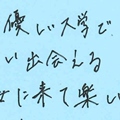 優しい大学で
い出会える
に来て楽し